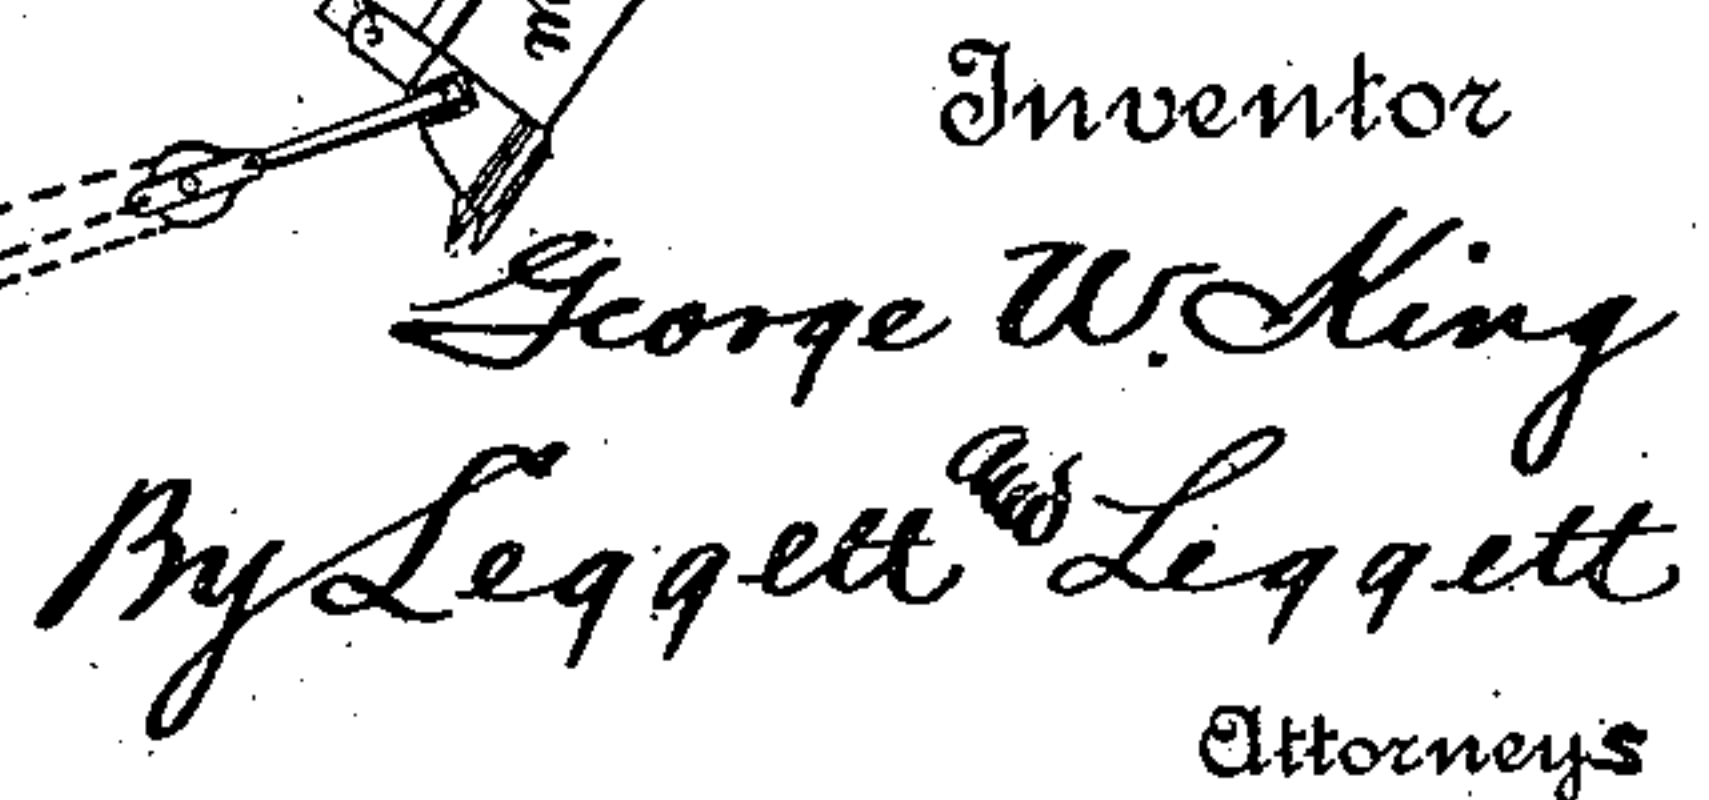 Inventor
George W. King
By Leggett and Leggett
Attorneys